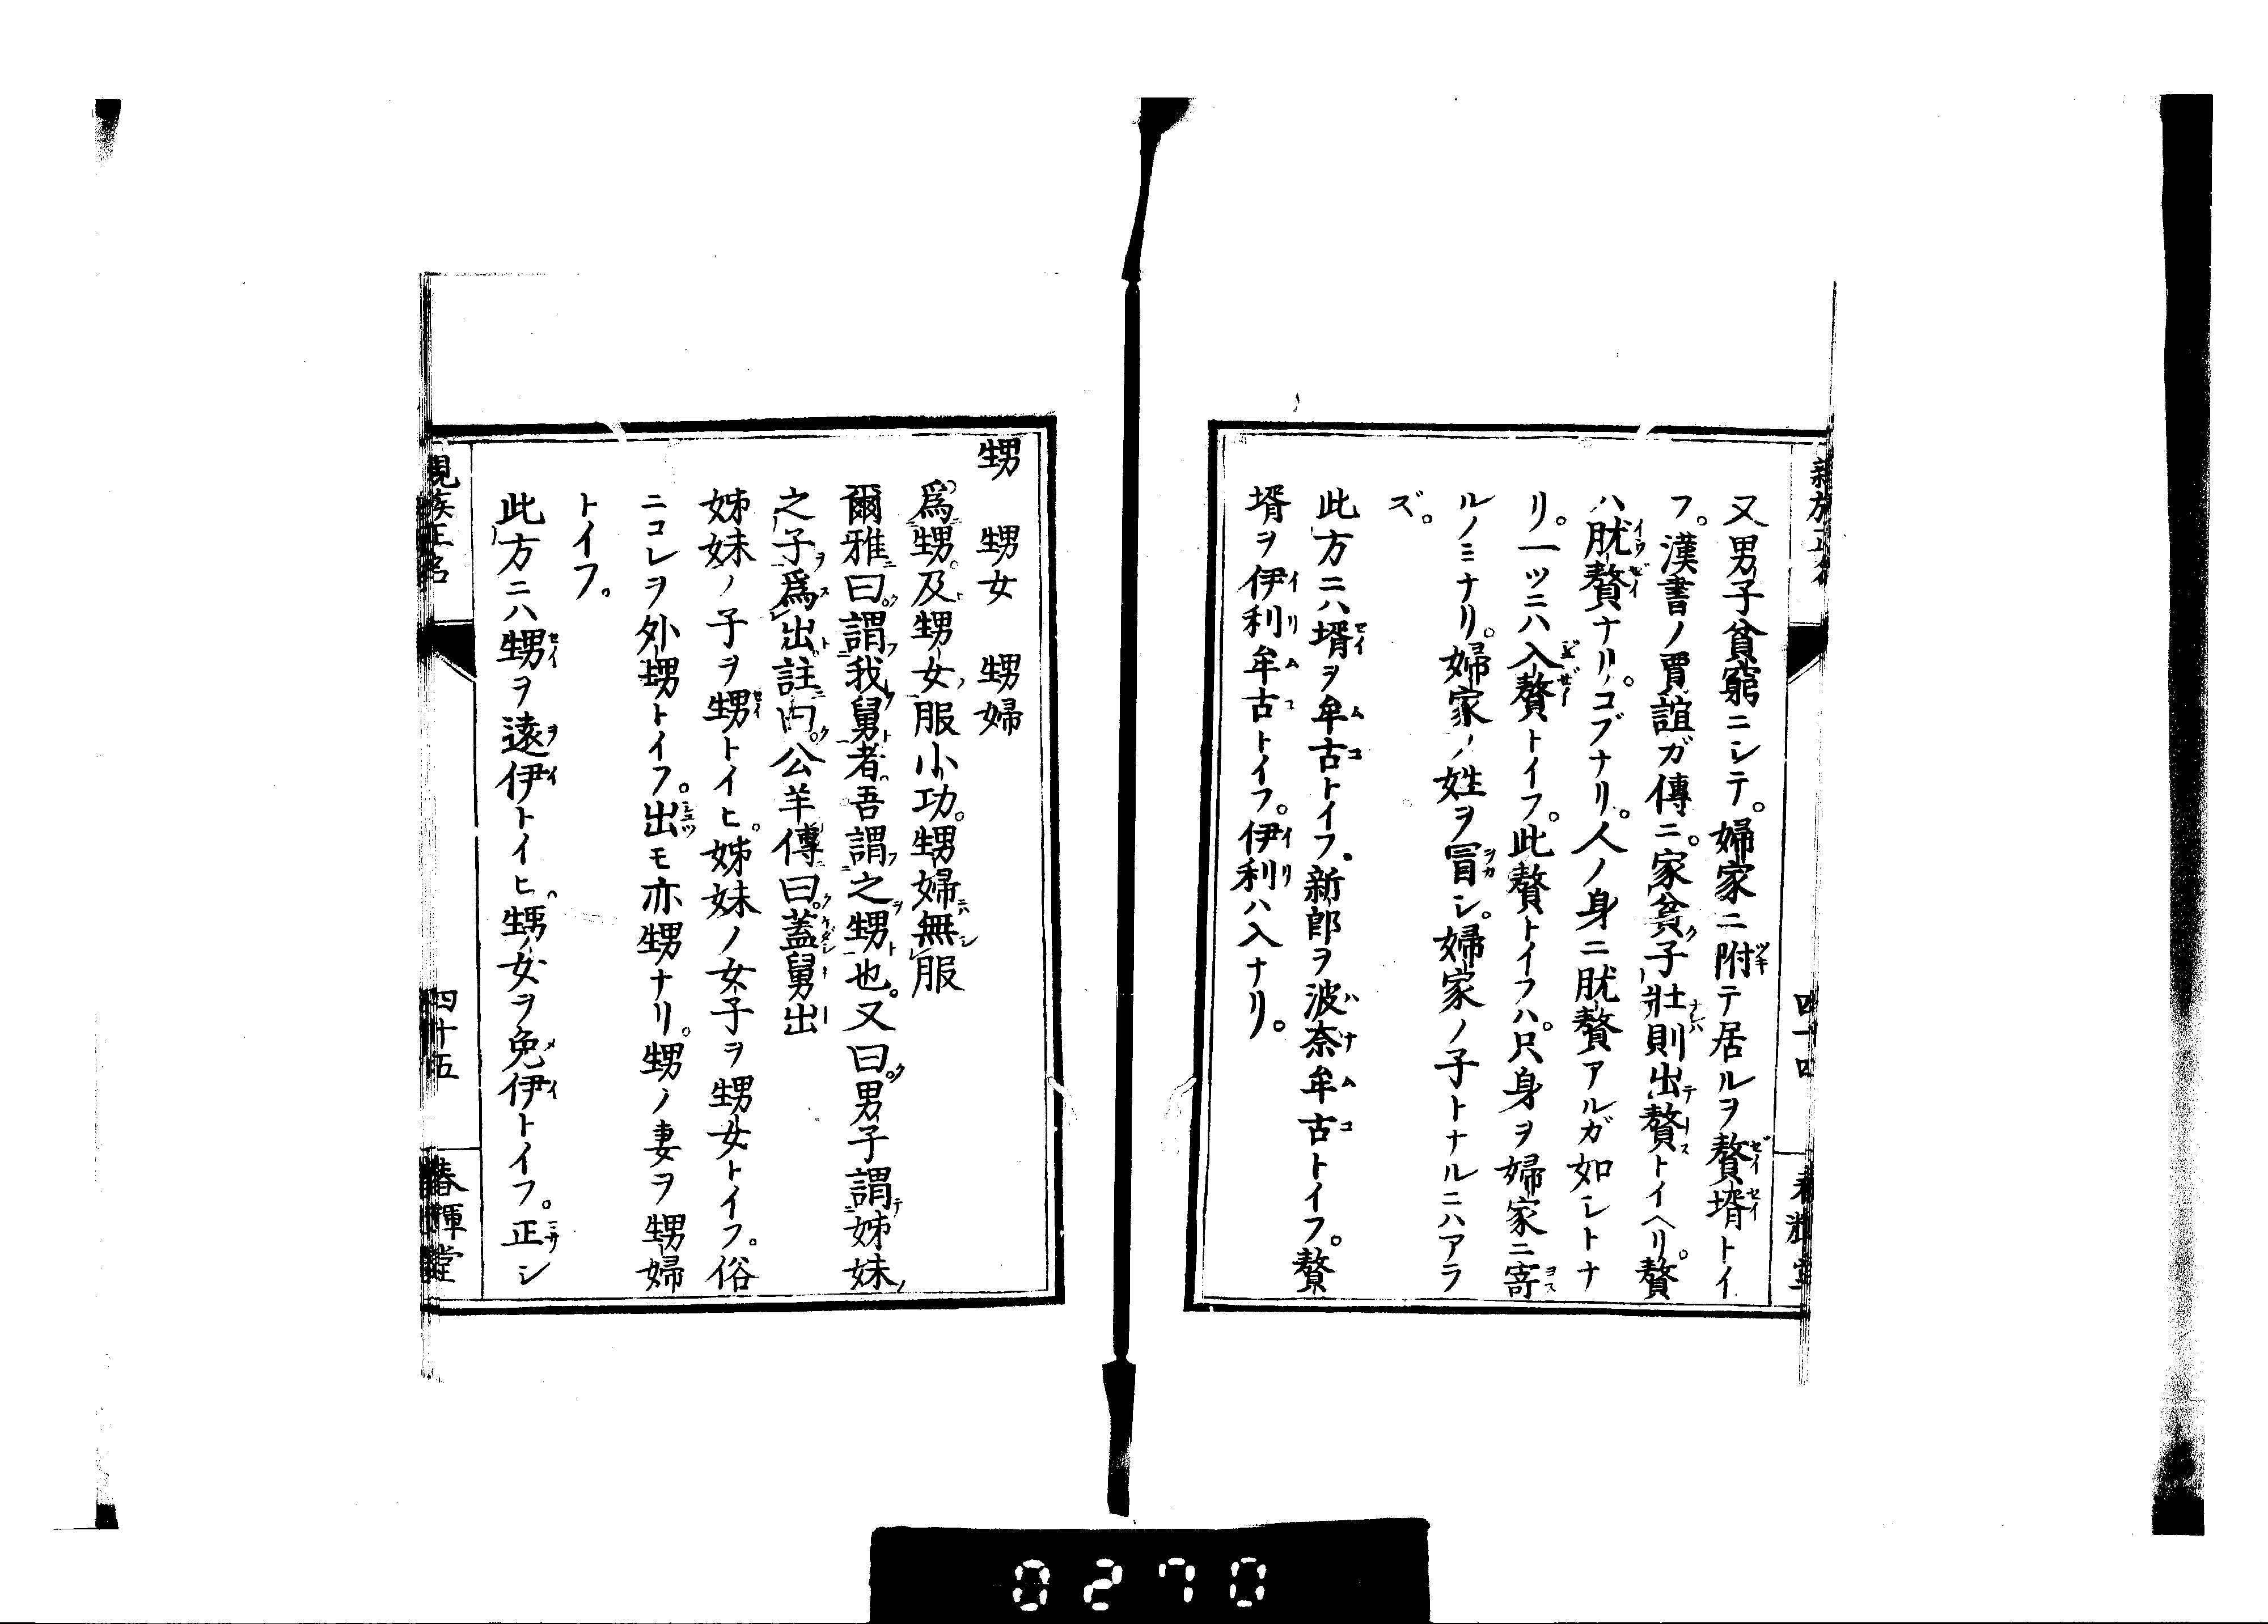 又男子貧窮ニシテ。婦家ニ附テ居ルヲ贅壻トイ
フ。漢書ノ賈誼ガ傳ニ。家貧子壯則出贅トイヘリ。贅
ハ肬贅ナリ。コブナリ。人ノ身ニ肬贅アルガ如シトナ
リ。一ツニハ入贅トイフ。此贅トイフハ。只身ヲ婦家ニ寄
ルノミナリ。婦家ノ姓ヲ冐シ。婦家ノ子トナルニハアラ
ズ。
此方ニハ壻ヲ牟古トイフ。新郎ヲ波奈牟古トイフ。贅
壻ヲ伊利牟古トイフ。伊利ハ入ナリ。
甥 甥女 甥婦
爲甥。及甥女服小功。甥婦無服
爾雅曰。謂我舅者。吾謂之甥也。又曰。男子謂姊妹
之子爲出。註曰。公羊傳曰。蓋舅出
姊妹ノ子ヲ甥トイヒ。姊妹ノ女子ヲ甥女トイフ。俗
ニコレヲ外甥トイフ。出モ亦甥ナリ。甥ノ妻ヲ甥婦
トイフ。
此方ニハ甥ヲ遠伊トイヒ。甥女ヲ免伊トイフ。正シ
親族正名
四十五
春暉堂
0270